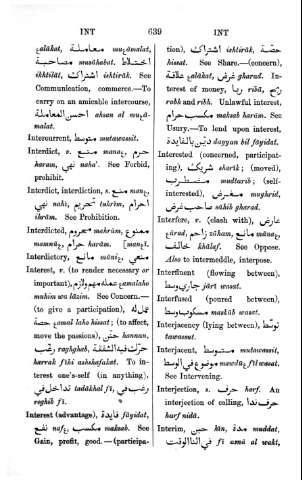 INT 639 INT
ɛalâkat, معاملة muɛâmalat,
مصاحبة musâhabat. اختلاط
ikhtilât, اشتراك ishtirâk. See
Communication, commerce.—To
carry on an amicable intercourse,
احسن المعاملة ahsan al muɛâ-
malat.
Intercurrent, متوسط mutawassit.
Interdict, v. منع manaɛ, حرم
haram, نهى naha'. See Forbid,
prohibit.
Interdict, interdiction, s. منع manɛ,
نهي nahi, تحريم tahrîm, احرام
ihrâm. See Prohibition.
Interdicted, محروم mahrûm, ممنوع
mamnûɛ, حرام harâm. [manɛî.
Interdictory, مانع mâniɛ, منعي
Interest, v. (to render necessary or
important),
muhim wa lâzim. See Concern.—
(to give a participation), عمل له
حصة ɛamal laho hissat; (to affect,
move the passions), حنن hannan,
رغب raghghab, حرك فيه الشفقة
harrak fîhi ashshafakat. To in-
terest one's-self (in anything),
تداخل في tadâkhal fî, رغب في
raghib fî.
Interest (advantage), فايدة fâyidat,
نفع nafɛ, مكسب maksab. See
Gain, profit, good.—(participa-
tion), اشتراك ishtirâk, حصة
hissat. See Share.—(concern),
علاقة ɛalâkat, غرض gharad. In-
terest of money, ربا ribâ, ربح
robh and ribh. Unlawful interest,
مكسب حرام maksab harâm. See
Usury.—To lend upon interest,
دين بالفايدة dayyan bil fâyidat.
Interested (concerned, participat-
ing), شريك sharîk; (moved),
مضطرب mudtarib; (self-
interested), مغرض mughrid,
صاحب غرض sâhib gharad.
Interfere, v. (clash with), عارض
ɛârad, زاحم zâham, مانع mânaɛ,
خالف khâlaf. See Oppose.
Also to intermeddle, interpose.
Interfluent (flowing between),
جاري وسط jârî wasat.
Interfused (poured between),
مسكوب وسط maskûb wasat.
Interjacency (lying between), توسط
tawassut.
Interjacent, متوسط mutawassit,
موضوع في الوسط mawdûɛ fîl wasat.
See Intervening.
Interjection, s. حرف harf. An
interjection of calling, حرف ندا
harf nidâ.
Interim, حين hîn, مدة muddat,
في اثنا الوقت fî asnâ al wakt,